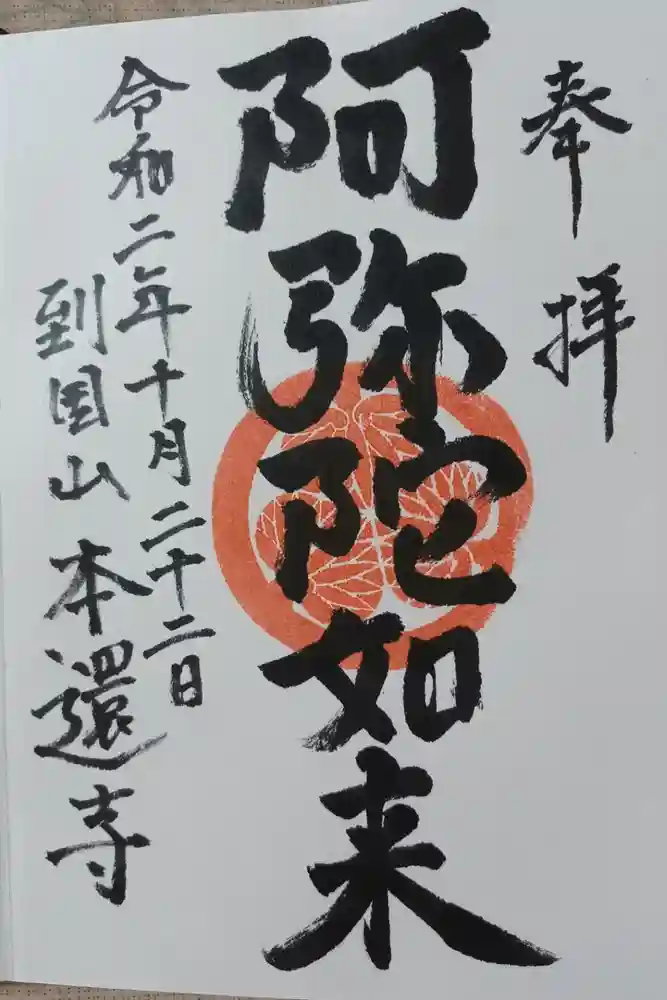 奉拝
阿弥陀如来
令和二年十月二十二日
到国山本還寺